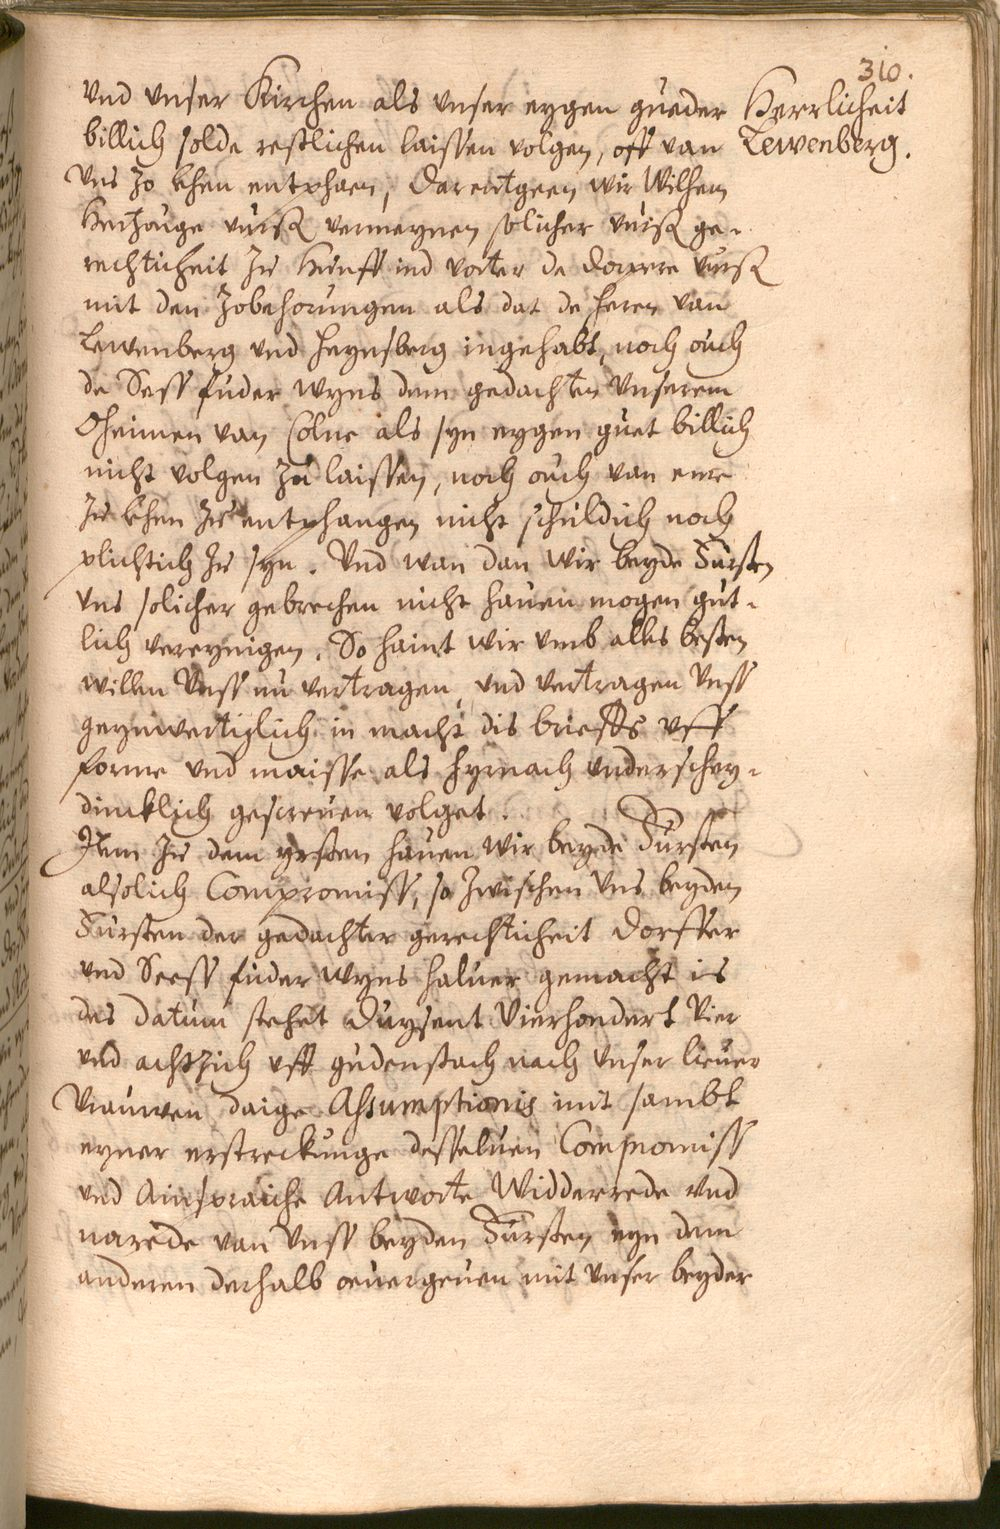 310.
Herrlicheit
Lewenberg.
vnd vnser Kirchen als vnser eygen gueder
billich solde restlichen laissen volgen, off van
vns zo lehen entphaen, Darentgeen wir Wilhem
Hertzouge vursß vermeynen solicher vursß ge-
rechticheit zu Hunff ind vorter de dorpere vursß
mit den zobehorungen als dat de heren van
Lewenberg vnd Heynsberg ingehabt, noch ouch
de Sess fuder wyns dem gedachten vnserem
Oheimen van Colne als syn eygen guet billich
nicht volgen zu laissen, noch ouch van eme
zu lehen zu entphangen nicht schuldich noch
plichtich zu syn. Vnd wan dan wir beyde Fursten
vns solicher gebrechen nicht hauen mogen gut-
lich vereynigen. So haint wir vmb alles besten
willen vnss nu vertragen, vnd vertragen vnss
geynwertiglich in macht dis brieffs vff
forme vnd maisse als hyrnach vnderschey-
dincklich gescreuen volget.
Item zu dem yrsten hauen wir beyde Fursten
alsolich Compromiss, so zwischen vns beyden
Fursten der gedachter gerechticheit Dorffer
vnd Seess fuder wyns haluer gemacht is
des datum stehet Duysent Vierhondert Vier
vnd achtzich vff gudenstach nach vnser lieuer
Vrauwen daige Assumptionis mit sambt
eyner erstreckunge desseluen Compromiss
vnd Ainspraiche Antworte Widderrede vnd
narede van vnss beyden Fursten eyn dem
anderen derhalb oeuergeuen mit vnser beyder